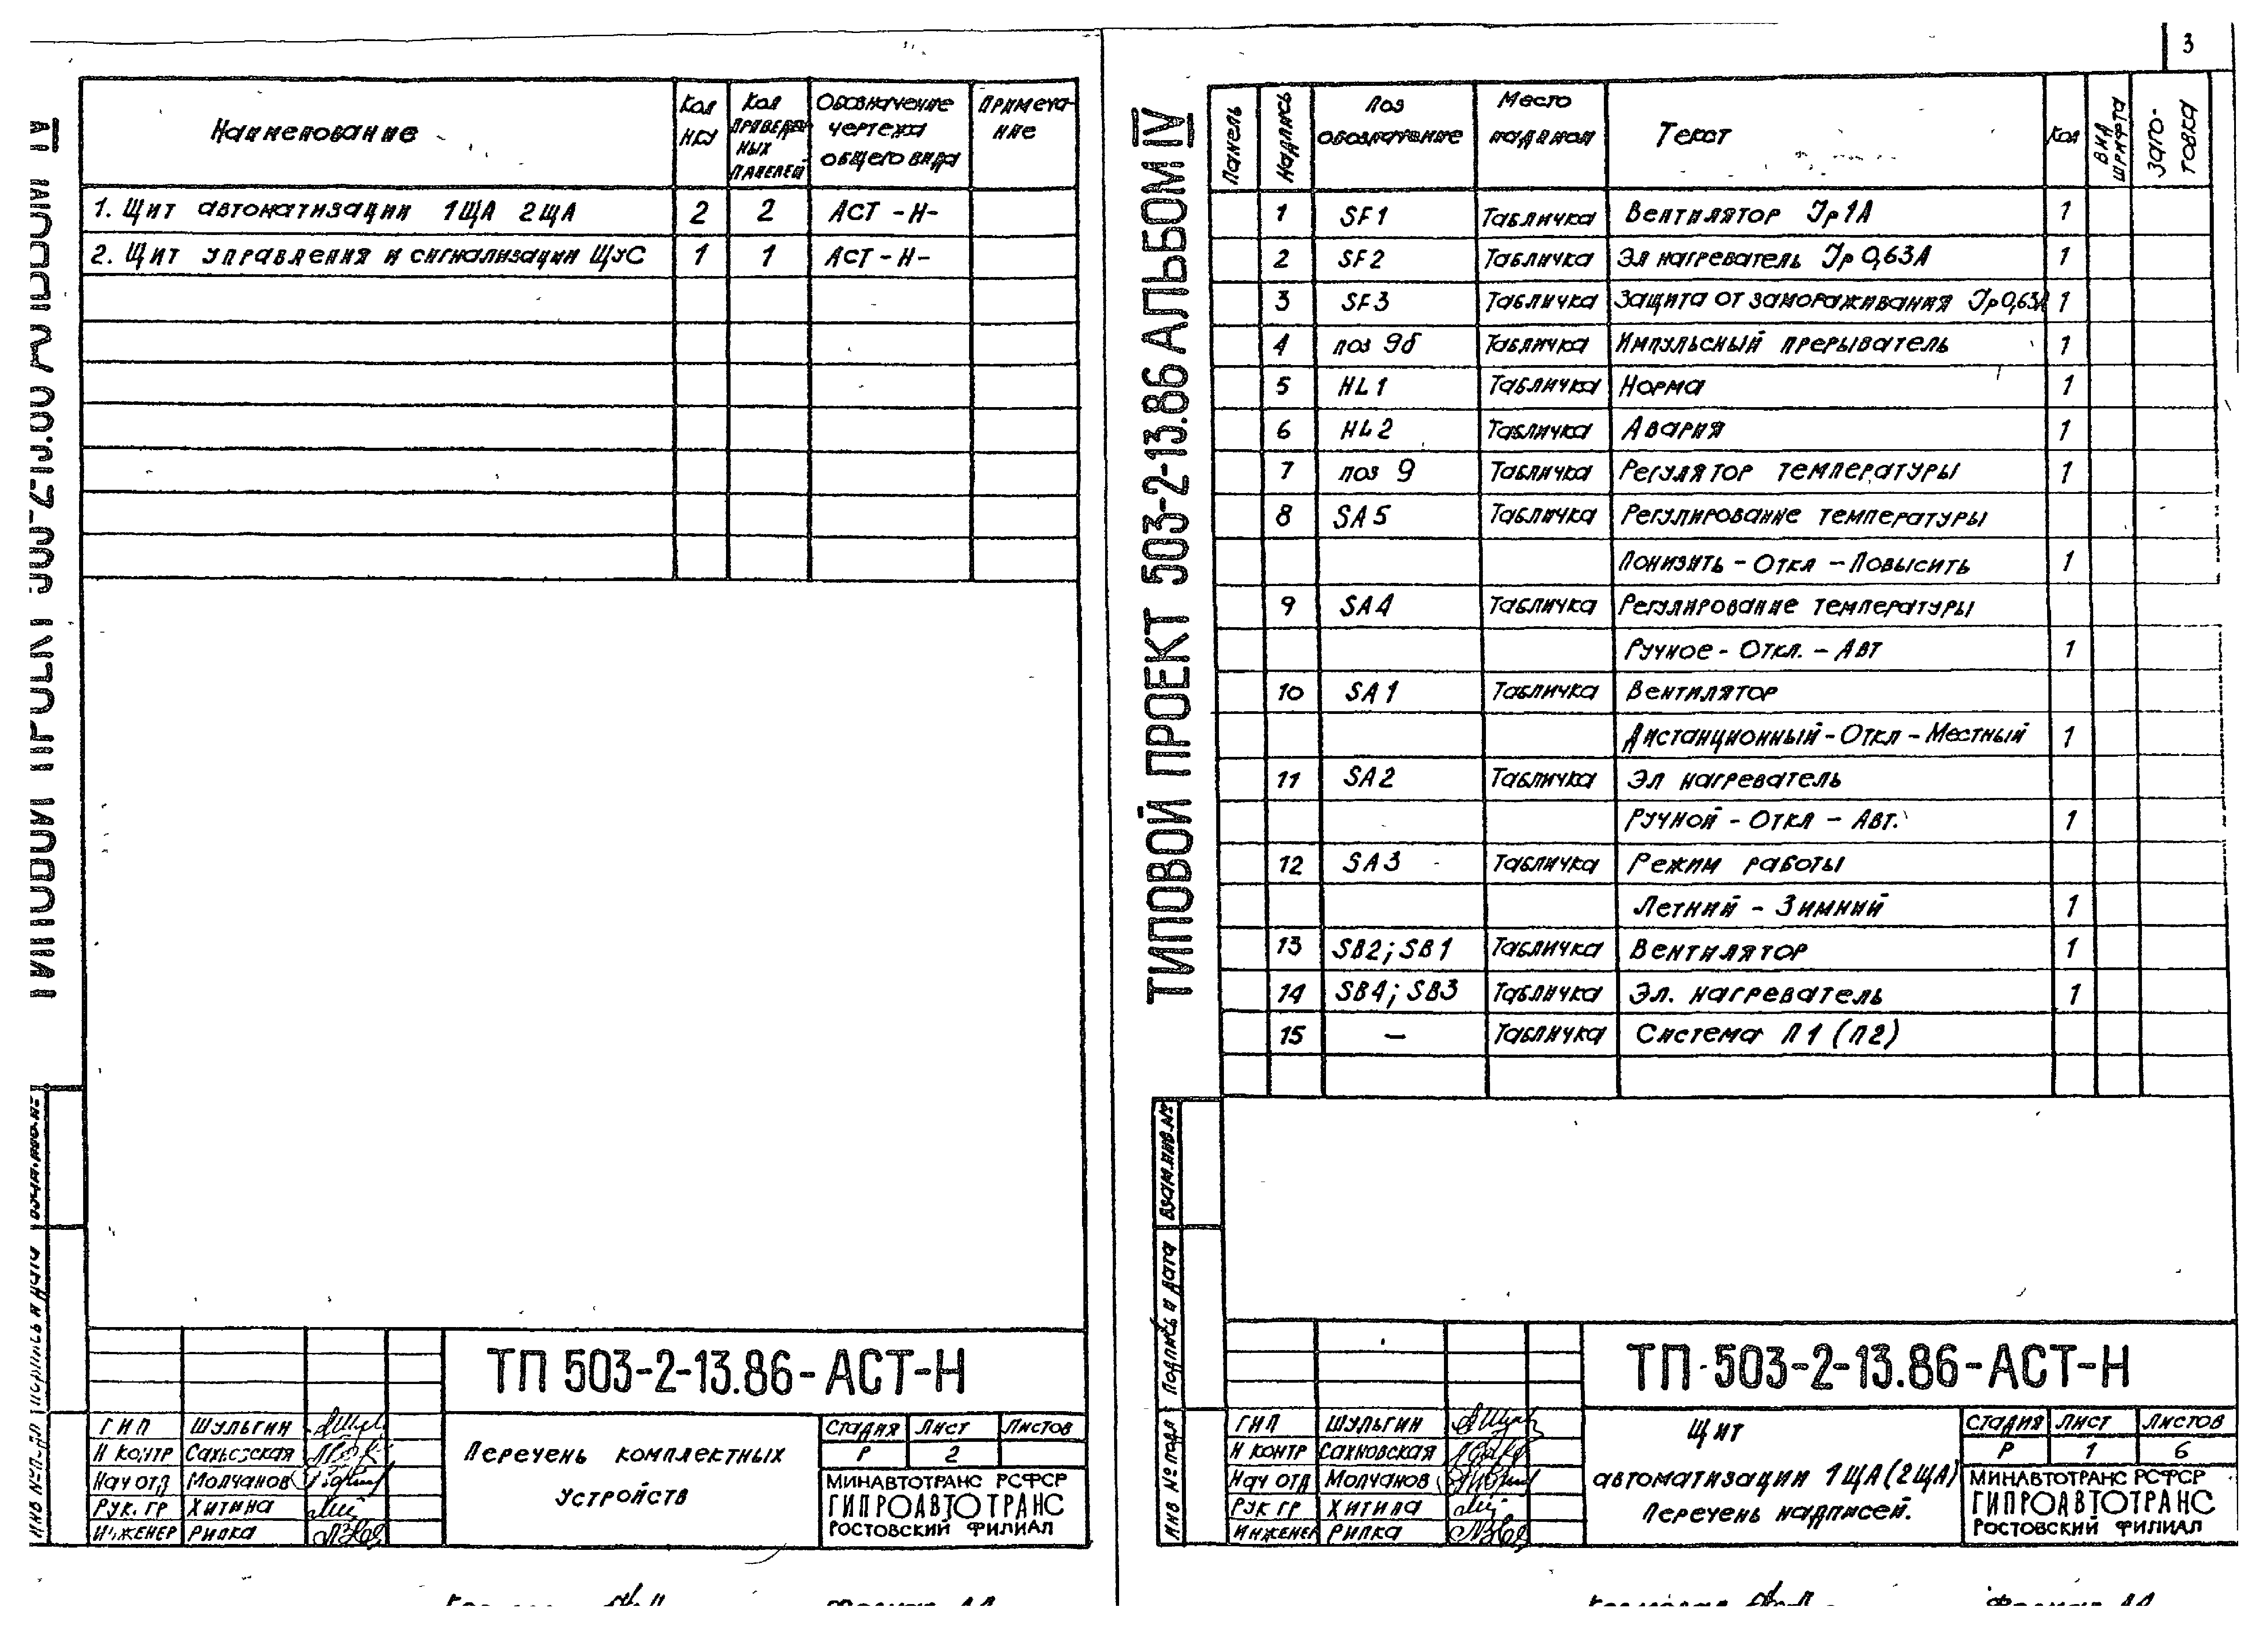 3
ТИПОВОЙ ПРОЕКТ 503-2-13.86 АЛЬБОМ IV
Наименование
Кол НКУ
Кол приведенных панелей
Обозначение чертежа общего вида
Примечание
1. Щит автоматизации 1ЩА 2ЩА 2 2 АСТ-Н-
2. Щит управления и сигнализации ЩУС 1 1 АСТ-Н-
Взам.инв.№
Подпись и дата
Инв № подл
ТП 503-2-13.86-АСТ-Н
ГИП Шульгин
Н контр Сахновская
Нач отд Молчанов
Рук. гр Хитина
Инженер Рипка
Перечень комплектных
устройств
Стадия Лист Листов
Р 2
МИНАВТОТРАНС РСФСР
ГИПРОАВТОТРАНС
Ростовский филиал
ТИПОВОЙ ПРОЕКТ 503-2-13.86 АЛЬБОМ IV
Панель
Надпись
Поз обозначение
Место надписи
Текст
Кол
Вид шрифта
Заготовка
1 SF1 Табличка Вентилятор Jр 1А 1
2 SF2 Табличка Эл нагреватель Jр 0,63А 1
3 SF3 Табличка Защита от замораживания Jр 0,63А 1
4 поз 9б Табличка Импульсный прерыватель 1
5 HL1 Табличка Норма 1
6 HL2 Табличка Авария 1
7 поз 9 Табличка Регулятор температуры 1
8 SA5 Табличка Регулирование температуры
Понизить - Откл - Повысить 1
9 SA4 Табличка Регулирование температуры
Ручное - Откл. - Авт 1
10 SA1 Табличка Вентилятор
Дистанционный - Откл - Местный 1
11 SA2 Табличка Эл нагреватель
Ручной - Откл - Авт. 1
12 SA3 Табличка Режим работы
Летний - Зимний 1
13 SB2; SB1 Табличка Вентилятор 1
14 SB4; SB3 Табличка Эл. нагреватель 1
15 — Табличка Система П1 (П2)
Взам.инв.№
Подпись и дата
Инв № подл
ТП 503-2-13.86-АСТ-Н
ГИП Шульгин
Н контр Сахновская
Нач отд Молчанов
Рук гр Хитина
Инженер Рипка
Щит
автоматизации 1ЩА (2ЩА)
Перечень надписей.
Стадия Лист Листов
Р 1 6
МИНАВТОТРАНС РСФСР
ГИПРОАВТОТРАНС
Ростовский филиал